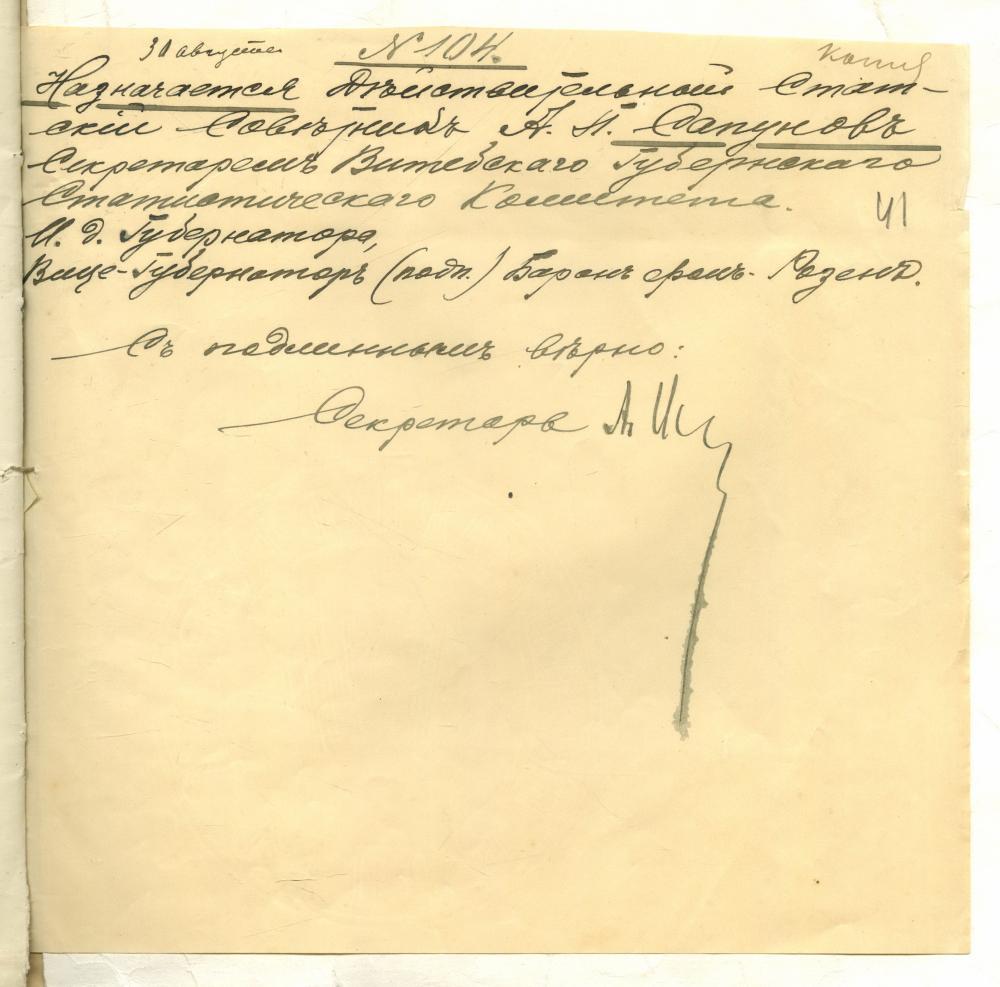 30 августа № 104. Копия
Назначается Дѣйствительный Стат-
скій Совѣтникъ А. П. Сапуновъ
Секретаремъ Витебскаго Губернскаго
Статистическаго Комитета.
41
И. д. Губернатора,
Вице-Губернаторъ (подп.) Баронъ фонъ-Розенъ.
Съ подлиннымъ вѣрно:
Секретарь